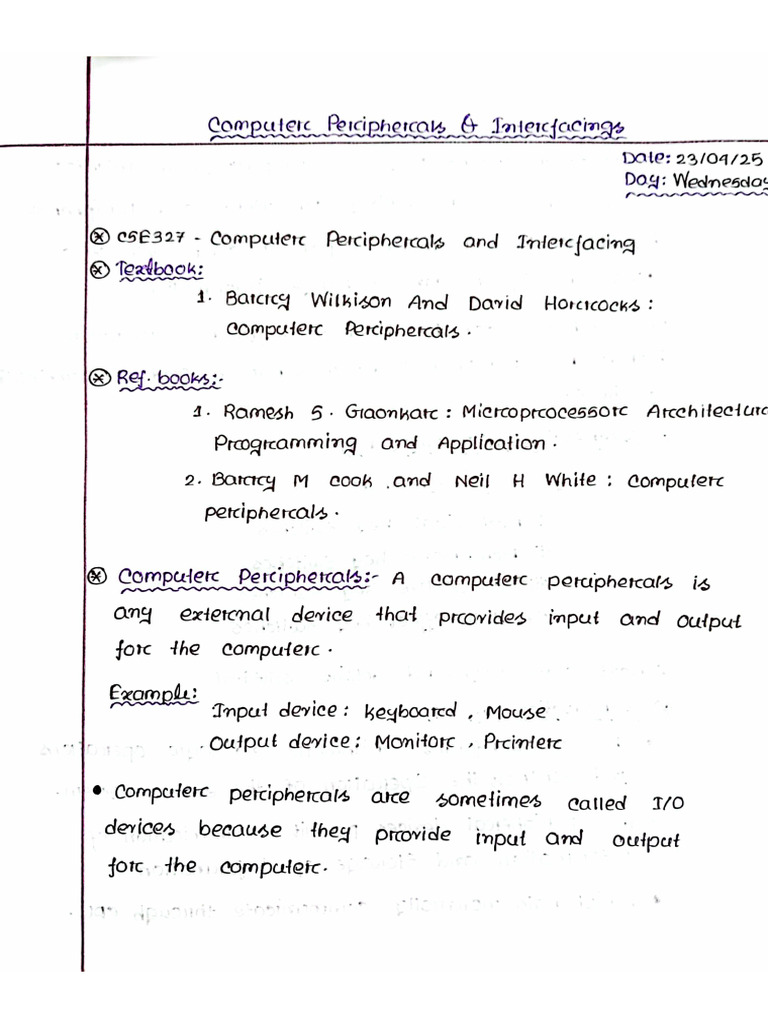 Computer Peripherals & Interfacings
Date: 23/04/25
Day: Wednesday
CSE327 - Computer Peripherals and Interfacing
Textbook:
1. Barry Wilkison And David Horrocks :
Computer Peripherals.
Ref. books:-
1. Ramesh S. Graonkar : Microprocessor Architecture
Programming and Application.
2. Barry M Cook and Neil H White : Computer
peripherals.
Computer Peripherals:- A computer peripherals is
any external device that provides input and output
for the computer.
Example:
Input device : Keyboard, Mouse.
Output device : Monitor, Printer
• Computer peripherals are sometimes called I/O
devices because they provide input and output
for the computer.